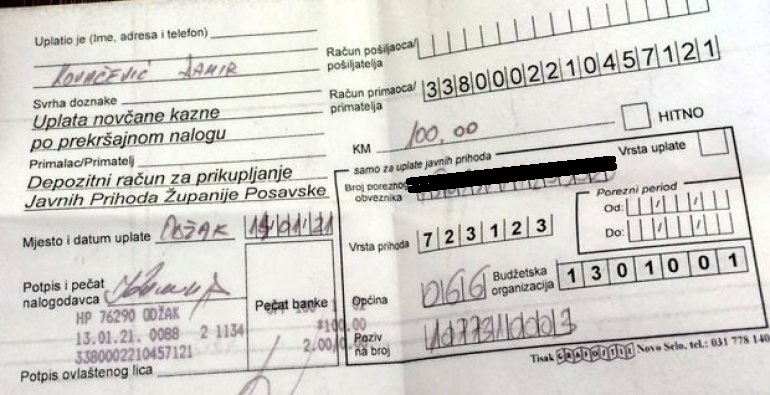 Uplatio je (Ime, adresa i telefon)
KOVAČEVIĆ DAMIR
Svrha doznake
Uplata novčane kazne
po prekršajnom nalogu
Primalac/Primatelj
Depozitni račun za prikupljanje
Javnih Prihoda Županije Posavske
Mjesto i datum uplate ODŽAK 01 21
Potpis i pečat
nalogodavca
HP 76290 ODŽAK
13.01.21. 0088 2 1134
3380002210457121
Potpis ovlaštenog lica
Pečat banke
*100.00
2.00/0.
Račun pošiljaoca/
pošiljatelja
Račun primaoca/
primatelja
3380002210457121
KM 100,00
HITNO
samo za uplate javnih prihoda
Vrsta uplate
Broj poreznog
obveznika
Porezni period
Od:
Do:
Vrsta prihoda 723123
Općina 066
Budžetska
organizacija
1301001
Poziv
na broj
Tisak GRAFOTIT Novo Selo, tel.: 031 778 140